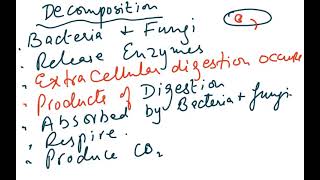 Decomposition
. Bacteria + Fungi
. Release Enzymes
. Extracellular digestion occurs
. Products of Digestion
. Absorbed by Bacteria + fungi.
. Respire.
. Produce CO2